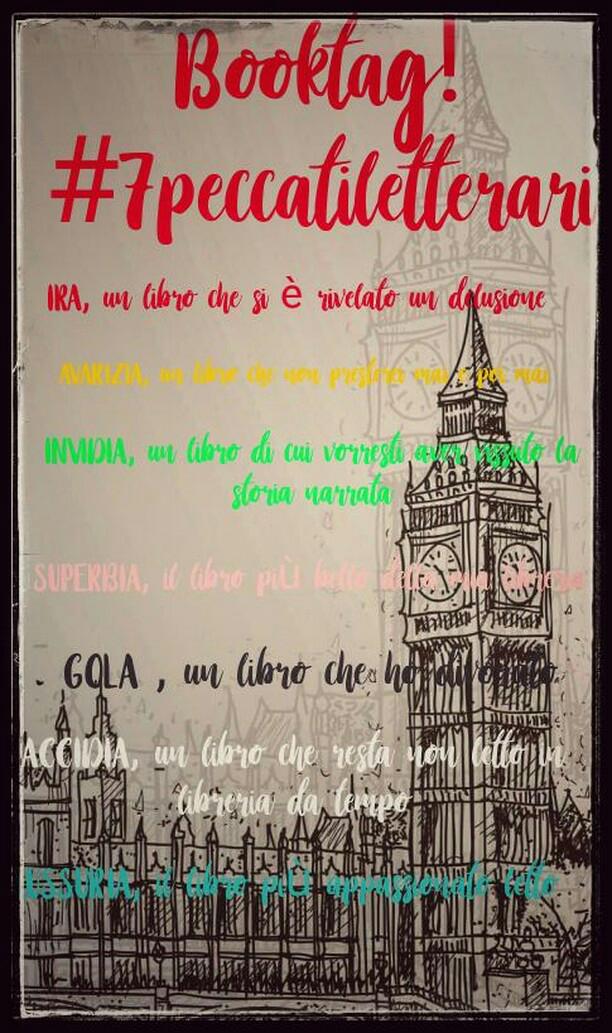 Booktag!
#7peccatiletterari
IRA, un libro che si è rivelato un delusione
AVARIZIA, un libro che non presterei mai e poi mai
INVIDIA, un libro di cui vorresti aver vissuto la
storia narrata
SUPERBIA, il libro più bello della tua libreria
. GOLA , un libro che ho divorato.
ACCIDIA, un libro che resta non letto in
libreria da tempo
LUSSURIA, il libro più appassionato letto